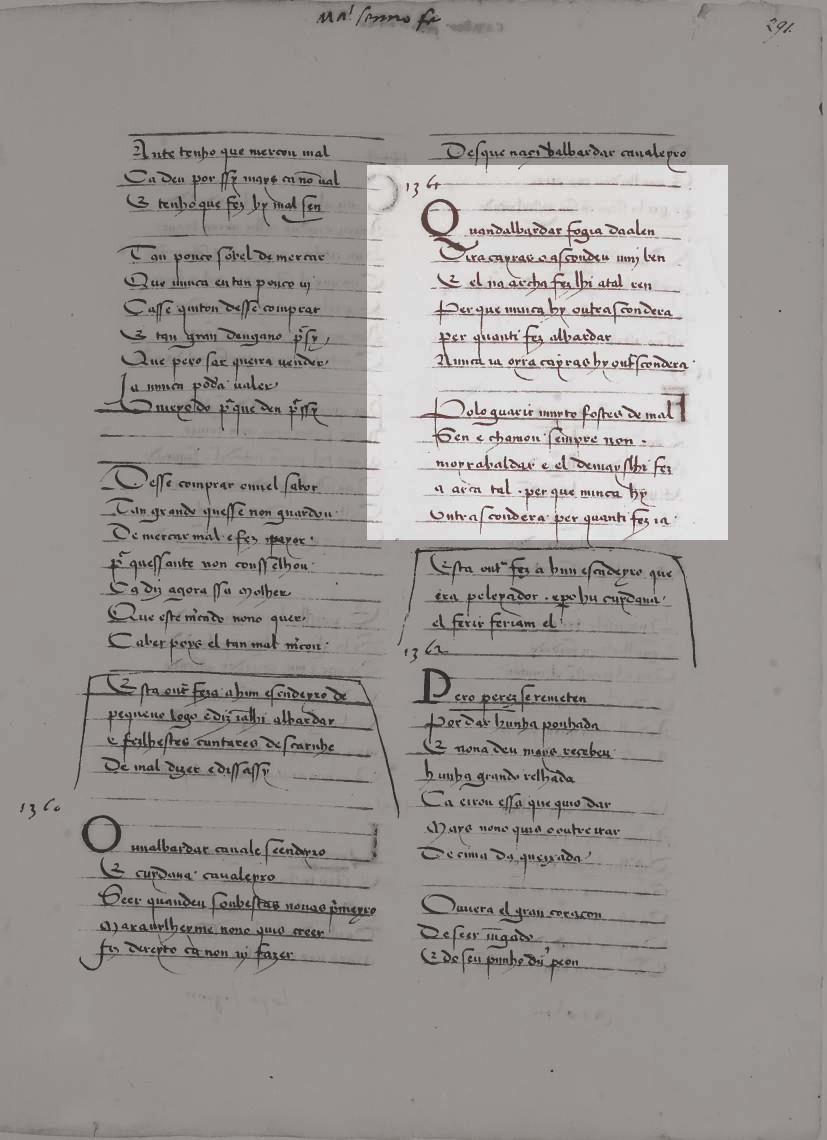 291
Ante tenho que mercou mal
Ca deu por ssy mays ca nō ual
E tenho que fez hy mal sen
Tan pouco sobel de mercar
Que nunca en tan pouco ui
Casse quiton desse comprar
E tan gran dengano
Que pero sar queira uender
Ja nunca podꝰa ualer
que deu
Desse comprar ouuel sabor
Tan grande quesse non guardou
De mercar mal e fez peyor
quessante non consselhou
Ca diz agora ssa molher
Que este non quer
Caber pero el tan mal
Esta fez a huun escudeyro de
pequeno logo e albardar
e fezlhestes cantares descarnho
De mal dizer e diss assy
1360
Ounalbardar caualo scendeyro
E cuydaua caualeyro
Seer quandeu soubestas nouas
Marauilheyme nono quis creer
fiz dereyto ca non ui fazer
Desque naçi dalbardar caualeyro
1361
Quandalbardar fogia daalen
Dira caprar e ascondeu umj ben
E el na archa fez lhi atal ren
Per que nunca hy outrascondera
per quanti fez albardar
Nunca ia hy
Polo guarir muyto fostes de mal
Sen e chamou sempre non
moyrabaldar e el demayslhi fez
a arca tal . per que nunca hy
Ontrascondera per quanti fez ia
Esta fez a huun escudeyro que
era peleiador . e pero hu cuydaua
el ferir feriam el
1362
Pero perez se remeteu
Por dar hunha punhada
E nona deu mays recebeu
hunha grande relhada
Ca errou essa que quis dar
Mays nono quis o outrerrar
De cima da queixada
Ouuera el gran coraçon
De seer uīgado
E de seu punho peon